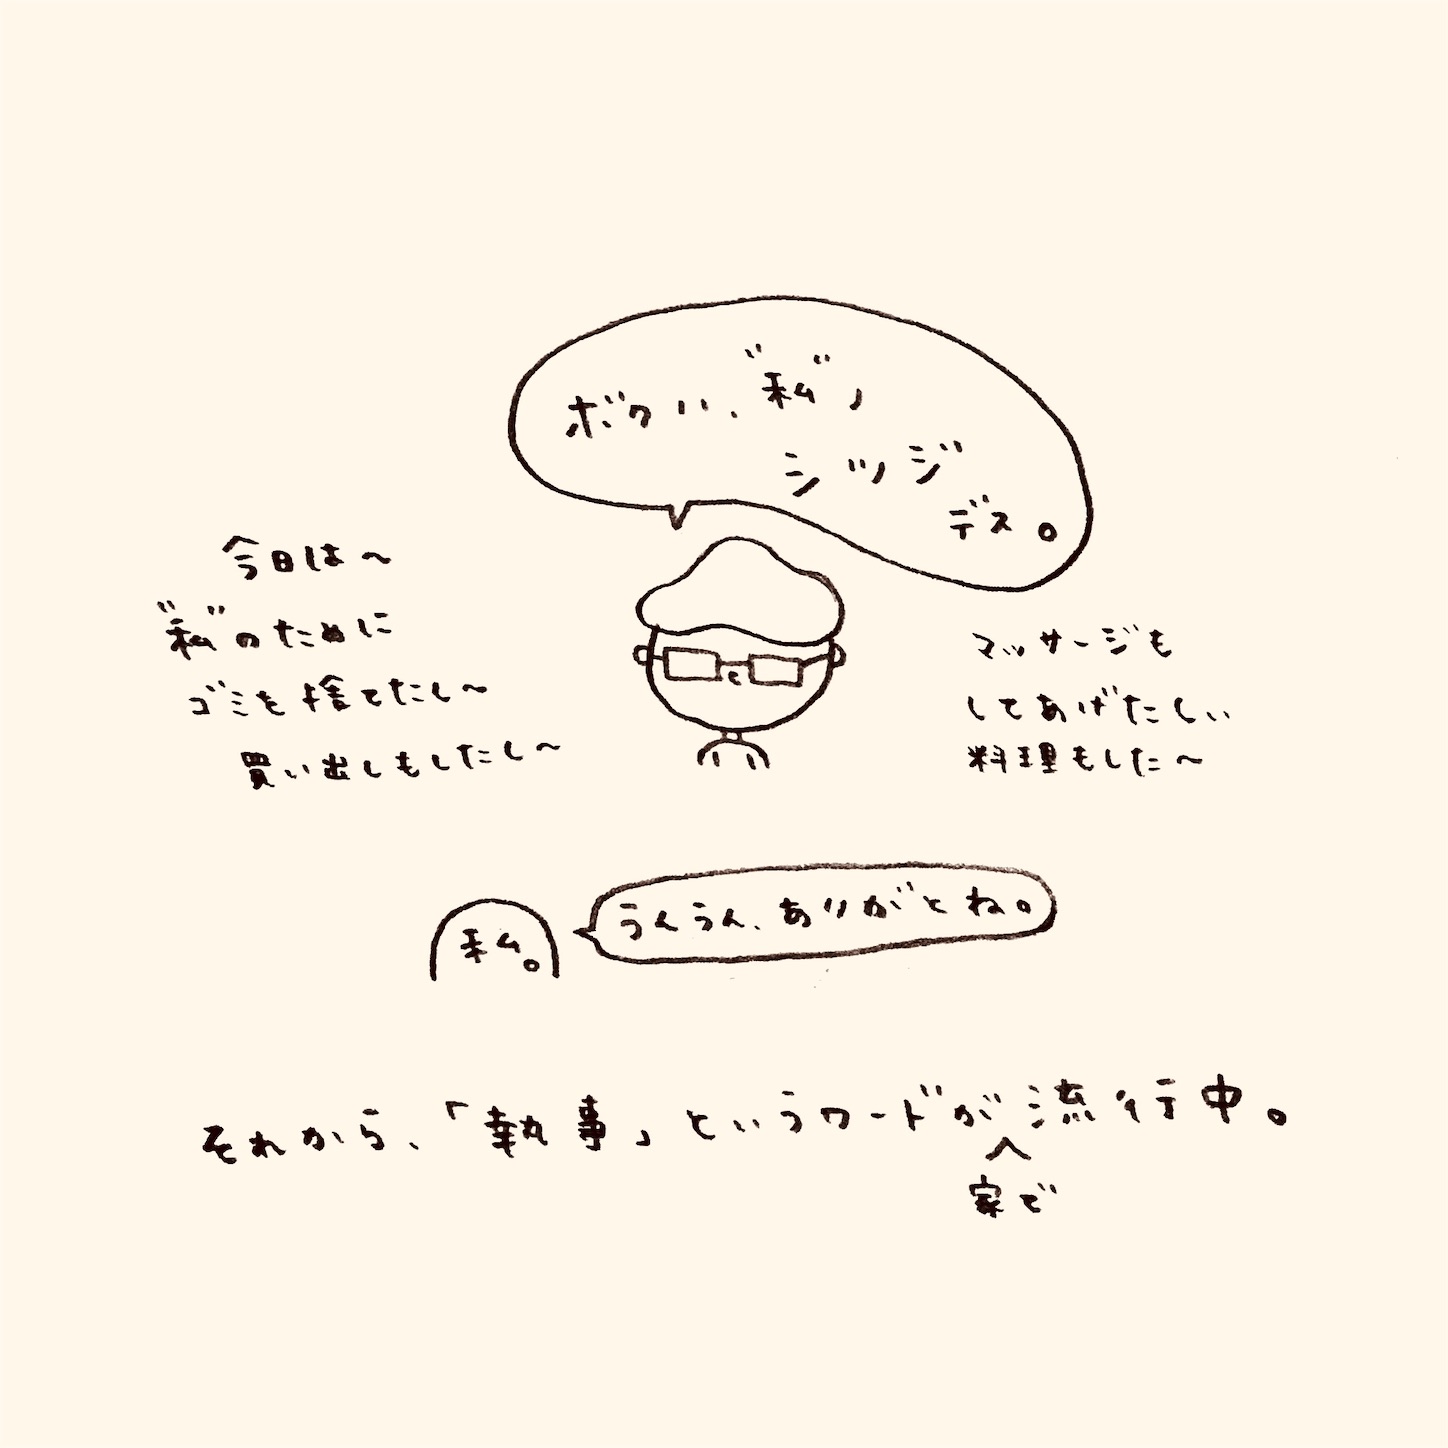 ボクハ、"私"ノ
シツジ
デス。
今日は〜
"私"のために
ゴミを捨てたし〜
買い出しもしたし〜
マッサージも
してあげたしぃ
料理もした〜
私。
うんうん、ありがとね。
それから、「執事」というワードが流行中。
家で